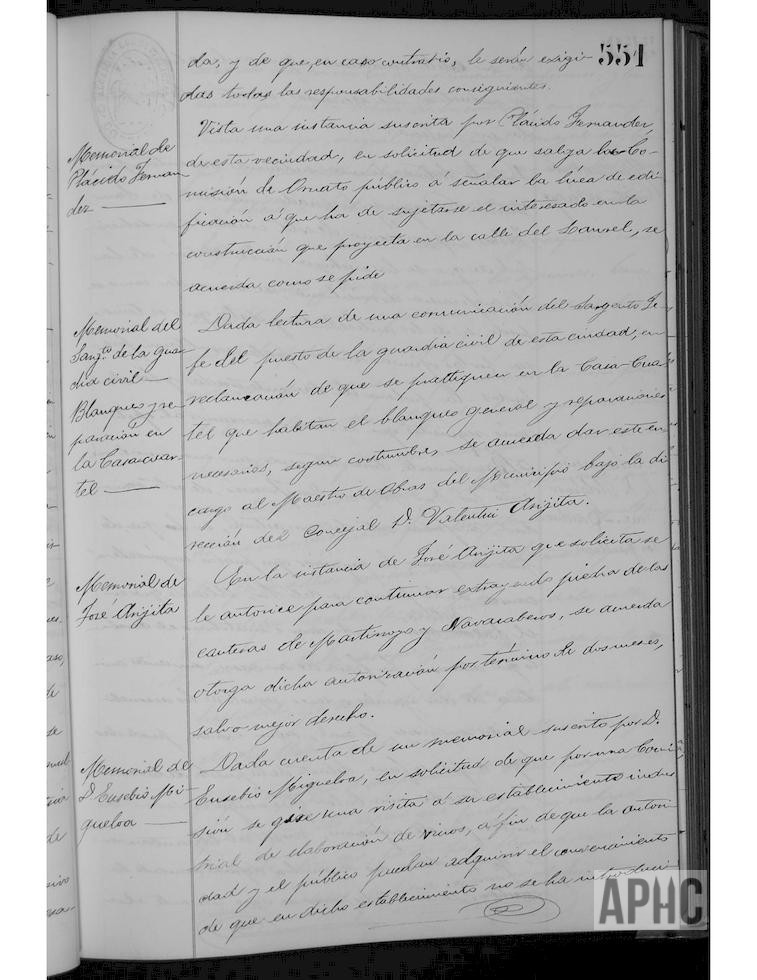 551
da, y de que, en caso contrario, le serán exigi-
das todas las responsabilidades consiguientes.
Memorial de
Plácido Fernan
dez
Vista una instancia suscrita por Plácido Fernandez
de esta vecindad, en solicitud de que salga la Co-
misión de Ornato público á señalar la línea de edi-
ficación á que ha de sujetarse el interesado en la
construcción que proyecta en la calle del Laurel, se
acuerda como se pide
Memorial del
Sargto. de la guar
dia civil
Blanqueo y re-
paración en
la Casa cuar-
tel
Dada lectura de una comunicación del Sargento Je-
fe del puesto de la guardia civil de esta ciudad, en
reclamación de que se practiquen en la Casa-Cuar-
tel que habitan el blanqueo general y reparaciones
necesarias, segun costumbre, se acuerda dar este en
cargo al Maestro de Obras del Municipio bajo la di
rección del Concejal D. Valentin Arijita.
Memorial de
José Arijita
En la instancia de José Arijita que solicita se
le autorice para continuar extrayendo piedra de las
canteras de y , se acuerda
otorga dicha autorización por término de dos meses,
salvo mejor derecho.
Memorial de
D. Eusebio Mi
gueloa
Dada cuenta de un memorial suscrito por D.
Eusebio Migueloa, en solicitud de que por una Comi
sión se gire una visita á su establecimiento indus
trial de elaboración de vinos, á fin de que la autori-
dad y el público puedan adquirir el convencimiento
de que en dicho establecimiento no se ha introduci
APHC